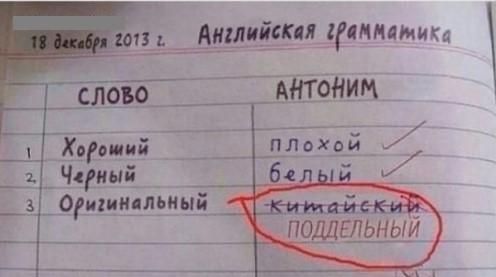 18 декабря 2013 г. Английская грамматика
СЛОВО АНТОНИМ
1 Хороший плохой
2, Черный белый
3 Оригинальный китайский
ПОДДЕЛЬНЫЙ